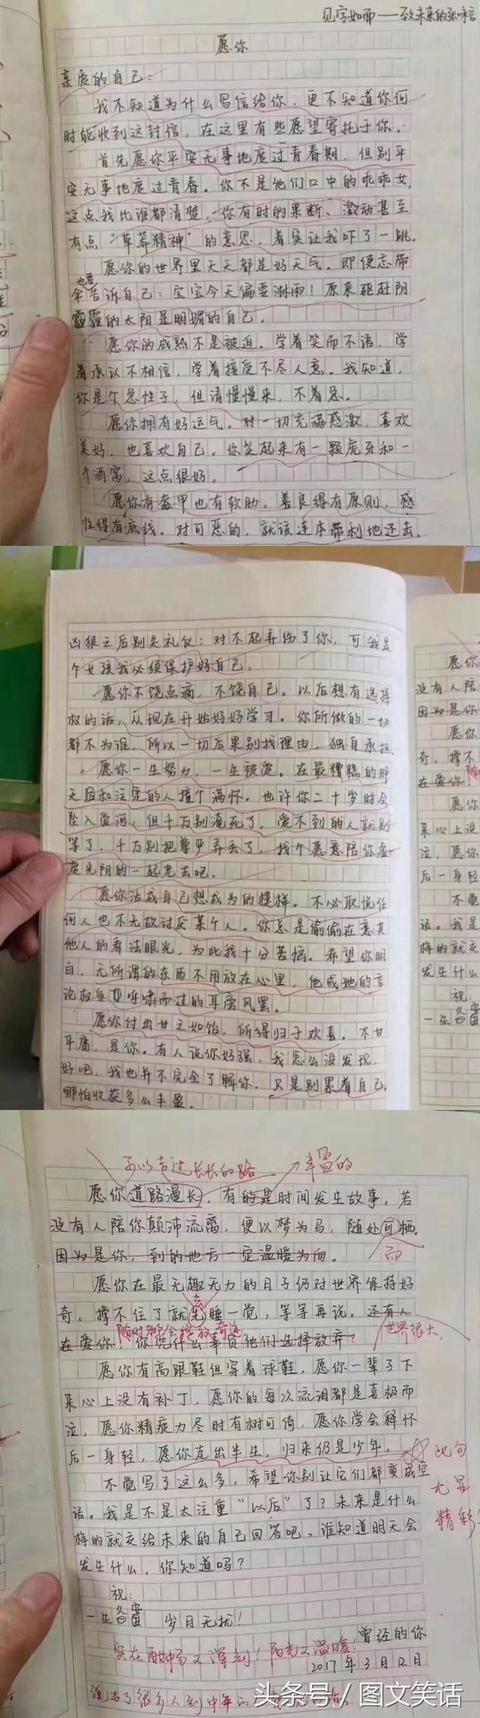 见字如面——致未来的张咏言
愿你
亲爱的自己：
我不知道为什么写信给你，更不知道你何
时能收到这封信，在这里有些愿望寄托于你。
首先愿你平安无事地度过青春期，但别平
安无事地度过青春。你不是他们口中的乖乖女，
这点我比谁都清楚，你有时的果断、激动甚至
有点“草莽精神”的意思，着实让我吓了一跳。
愿你的世界里天天都是好天气。即便忘带
伞也要告诉自己：宝宝今天偏要淋雨！原来驱赶阴
霾的太阳是明媚的自己。
愿你的成熟不是被迫。学着笑而不语，学
着承认不相信，学着接受不尽人意。我知道，
你是个急性子，但请慢慢来，不着急。
愿你拥有好运气。对一切充满感激，喜欢
美好，也喜欢自己。你笑起来有一颗虎牙和一
个酒窝，这点很好。
愿你有盔甲也有软肋，善良得有原则，感
性得有底线。对可恶的，就该连本带利地还击，
凶狠之后别失礼仪：对不起弄伤了你，可我是
个女孩我必须保护好自己。
愿你不饶点滴，不饶自己。以后想有选择
权的话，从现在开始好好学习。你所做的一切
都不为谁，所以一切后果别找理由，独自承担
愿你一生努力，一生被爱。在最糟糕的那
天后和注定的人撞个满怀。也许你二十岁时会
坠入爱河，但千万别淹死了，爱不到的人就别
等了，千万别把尊严弄丢了，找个愿意陪你虚
度光阴的一起老去吧。
愿你活成自己想成为的模样。不必取悦任
何人也不无故讨厌某个人。你总是偷偷在意其
他人的看法眼光，为此我十分苦恼。希望你明
白，无所谓的东西不用放在心里，他或她的言
论权当是呼啸而过的耳旁风罢。
愿你付出甘之如饴，所得归于欢喜。不甘
平庸，是你。有人说你好强，我怎么没发现，
好吧，我也并不完全了解你。只是别累着自己
哪怕收获多么丰盈。
可以走过长长的路 丰盈的
愿你道路漫长，有的是时间发生故事。若
没有人陪你颠沛流离，便以梦为马，随处可栖。
因为是你，到的地方一定温暖为向。
而
愿你在最无趣无力的日子仍对世界保持好
奇。撑不住了就先睡一觉，等等再说。还有人
在爱你，你凭什么辜负他们选择放弃？
世界很大，
愿你有高跟鞋但穿着球鞋，愿你一辈子下
来心上没有补丁，愿你的每次流泪都是喜极而
泣，愿你精疲力尽时有树可倚，愿你学会释怀
后一身轻，愿你走出半生，归来仍是少年。
此句
尤显
精彩！
不觉写了这么多，希望你别让它们都变成空
话。我是不是太注重“以后”了？未来是什么
样的就交给未来的自己回答吧，谁知道明天会
发生什么，你知道吗？
祝：
一生备蜜 岁月无扰！
曾经的你
实在酣畅又深刻！阳光又温暖！
2017年3月12日
头条号/图文笑话